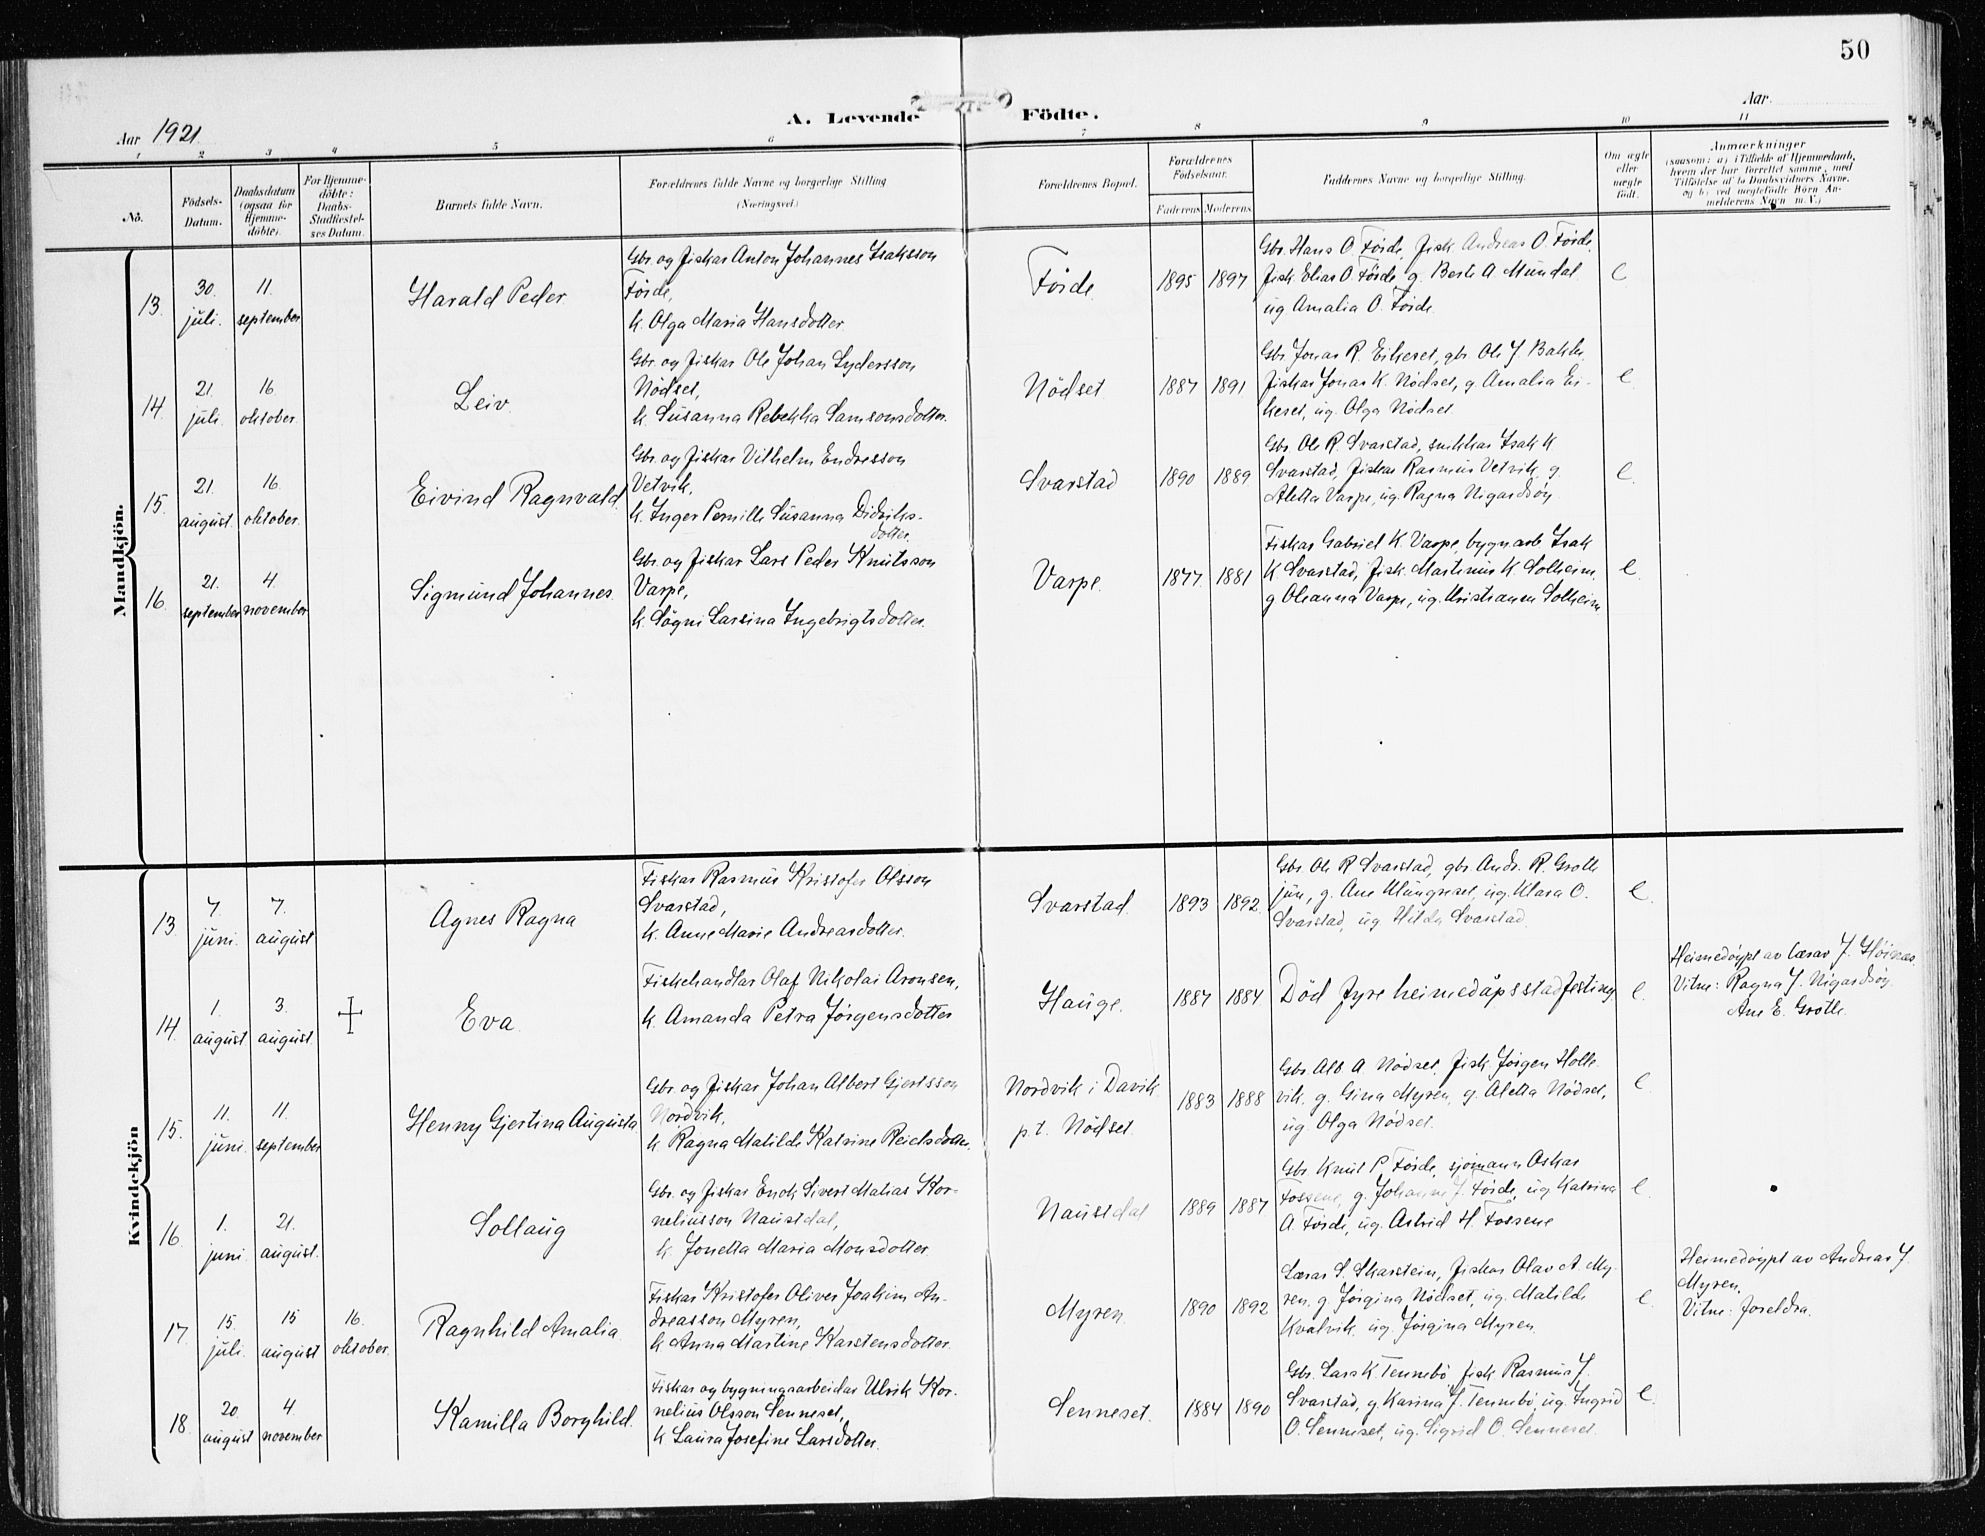 50
A. Levende Födte.
Aar 1921.
Aar
1 2 3 4 5 6 7 8 9 10 11
No.
Födsels-
Datum.
Daabsdatum
(ogsaa for
Hjemme-
döbte).
For Hjemme-
döbte:
Daabs-
Stadfæstel-
ses Datum.
Barnets fulde Navn.
Forældrenes fulde Navne og borgerlige Stilling
(Næringsvei.)
Forældrenes Bopæl.
Forældrenes
Födselsaar.
Faderens Moderens
Faddernes Navne og borgerlige Stilling.
Om ægte
eller
uægte
födt.
Anmærkninger
(saasom: a) i Tilfælde af Hjemmedaab,
hvem der har forrettet samme, med
Tilföielse af to Daabsvidners Navne,
og b) ved uægtefödte Börn An-
melderens Navn m. V.)
Mandkjön.
13. 30. juli. 11. september Harald Peder
Gbr. og fiskar Anton Johannes Isaksson
Förde,
k. Olga Maria Hansdotter.
Förde. 1895 1897
Gbr. Hans O. Förde, fisk. Andreas O. Förde,
fisk. Elias O. Förde, g. Berte A. Mundal
ug Amalia O. Förde.
e
14. 21. juli. 16. oktober. Leiv.
Gbr. og fiskar Ole Johan Lydersson
Nödset,
k. Susanna Rebekka Samsonsdotter.
Nödset 1887 1891
Gbr. Jonas R. Eikeset, gbr. Ole J. Bakke,
fiskar Jonas K. Nödset, g. Amalia Ei-
keset, ug. Olga Nödset.
e.
15. 21. august. 16. oktober. Eivind Ragnvald.
Gbr. og fiskar Vilhelm Endresson
Vetvik,
k. Inger Pernille Susanna Didriks-
dotter.
Svarstad 1890 1889.
Gbr. Ole R. Svarstad, snikkar Isak K
Svarstad, fiskar Rasmus Vetvik, g.
Aletta Varpe, ug. Ragna Nigardsöy.
e.
16. 21. september 4. november Sigmund Johannes.
Gbr. og fiskar Lars Peder Knutsson
Varpe,
k. Sögni Larsina Ingebrigtsdotter.
Varpe. 1877 1881
Fiskar Gabriel K. Varpe, bygn.arb. Isak
K Svarstad, fisk. Martinus K. Solheim,
g Oleanna Varpe, ug. Kristianna Solheim
e.
Kvindekjön
13. 7. juni. 7. august Agnes Ragna
Fiskar Rasmus Kristofer Olsson
Svarstad,
k. Anne Marie Andreasdotter.
Svarstad. 1893 1892.
Gbr. Ole R Svarstad, gbr. Andr. R. Grotle
jun, g. Ane Klungreset, ug. Klara O.
Svarstad, ug Hilda Svarstad.
e.
14. 1. august 3. august. Eva.
Fiskehandlar Olaf Nikolai Aronsen,
k. Amanda Petra Jörgensdotter
Hauge. 1887 1884
Död fyre heimedåpsstadfesting
e.
Heimedöypt av lærar J. Höinæs.
Vitne: Ragna J. Nigardsöy
Ane E. Grotle.
15. 11. juni. 11. september Henny Gjertina Augusta
Gbr. og fiskar Johan Albert Gjertsson
Nordvik,
k. Ragna Matilde Katrine Reielsdotter.
Nordvik i Davik
p.t. Nödset.
1883 1888
Gbr. Alb A. Nödset, fisk. Jörgen Holle-
vik, g. Gina Myren, g. Aletta Nödset,
ug. Olga Nödset.
e
16. 1. juni. 21. august. Sollaug
Gbr. og fiskar Enok Sivert Matias Kor-
neliusson Naustdal,
k. Jonetta Maria Monsdotter.
Naustdal 1889 1887
Gbr Knut P. Förde, sjömann Oskar
Fossene, g. Johanne J. Förde, ug Katrina
A. Förde, ug. Astrid H. Fossene
e.
17. 15. juli. 15 august 16. oktober. Ragnhild Amalia.
Fiskar Kristofer Oliver Joakim An-
dreasson Myren,
k Anna Martine Karstensdotter.
Myren. 1890 1892
Lærar S. Skarstein, fiskar Olav A. My-
ren. g Jörgina Nödset, ug. Matilde
Kvalvik. ug Jörgina Myren.
e.
Heimedöypt av Andreas J.
Myren.
Vitne: foreldra.
18. 20. august 4. november Kamilla Borghild.
Fiskar og bygningsarbeidar Ulrik Kor-
nelius Olsson Senneset,
k Laura Josefine Larsdotter.
Senneset. 1884 1890
Gbr. Lars K Tennebö, fisk. Rasmus J.
Svarstad, g. Karina J. Tennebö, ug. Ingrid
O. Senneset, ug. Sigrid O. Senneset.
e.